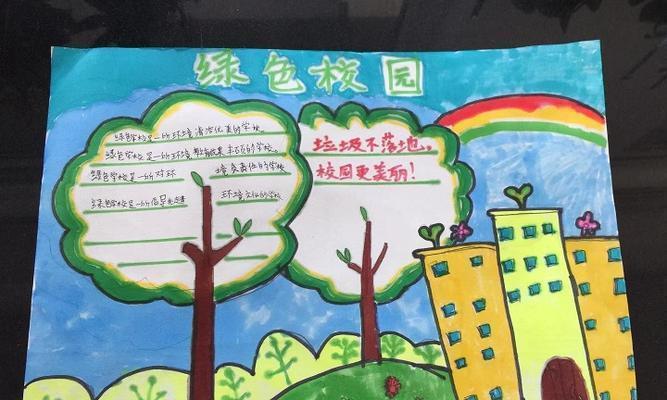 绿色校园
绿色学校是一所环境清洁优美的学校。
绿色学校是一所环境教育成果丰硕的学校。
绿色学校是一所对环境负责任的学校
绿色学校是一所倡导环境文化的学校
垃圾不落地,
校园更美丽!